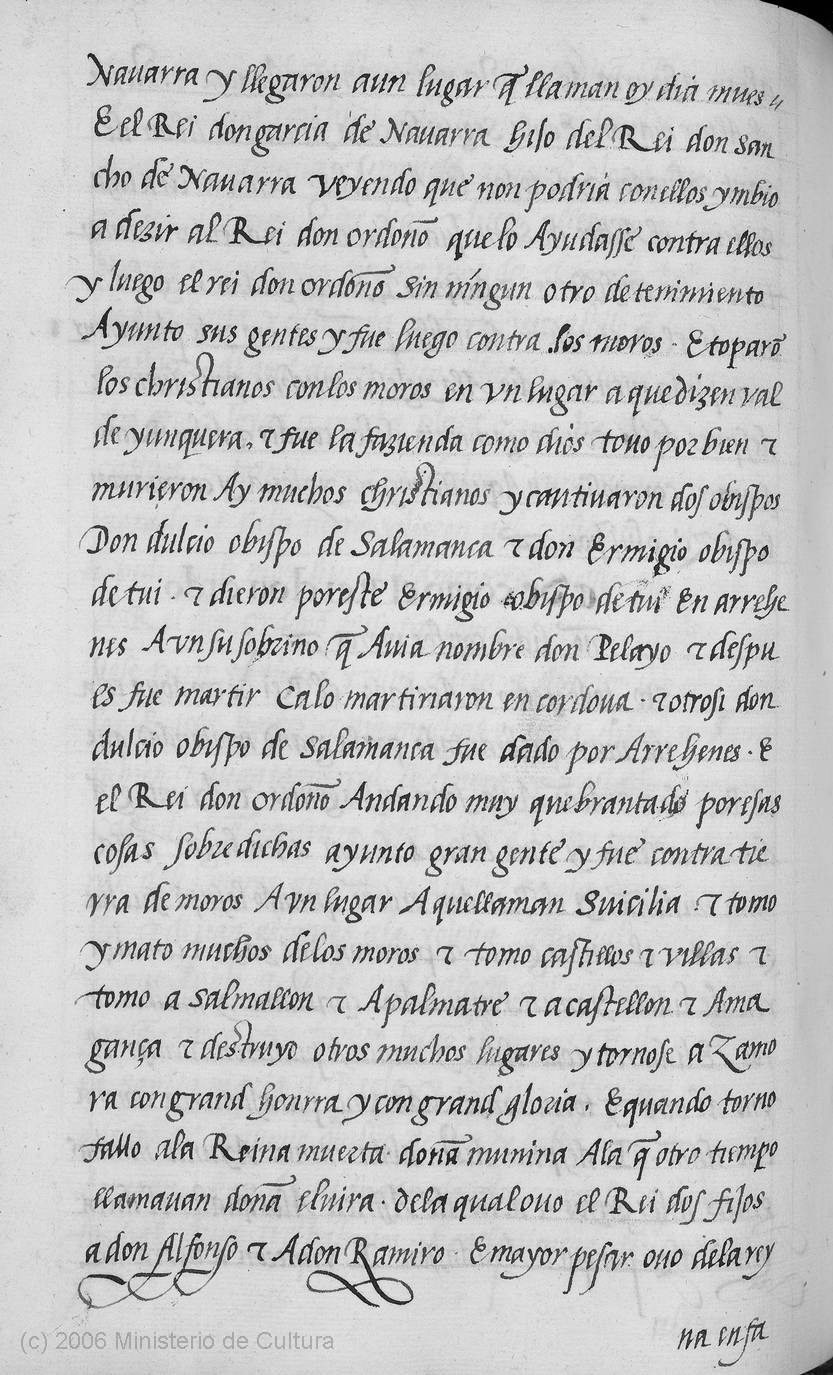 Nauarra y llegaron aun lugar q̃ llaman oy dia mues〃
E el Rei don garcia de Nauarra hijo del Rei don san
cho de Nauarra veyendo que non podria conellos ymbio
a dezir al Rei don ordoño que lo Ayudasse contra ellos
y luego el rei don ordoño sin ningun otro detenimiento
Ayunto sus gentes y fue luego contra los moros · E toparõ
los christianos con los moros en vn lugar a que dizen val
de yunquera, ⁊ fue la fazienda como dios touo por bien ⁊
murieron Ay muchos christianos y cautiuaron dos obispos
Don dulcio obispo de Salamanca ⁊ don Ermigio obispo
de tui · ⁊ dieron por este Ermigio obispo de tui En arrehe
nes A vn su sobrino q̃ Auia nombre don Pelayo ⁊ despu
es fue martir Ca lo martiriaron en cordoua · ⁊ otrosi don
dulcio obispo de Salamanca fue dado por Arrehenes · E
el Rei don ordoño Andando muy quebrantado por esas
cosas sobre dichas ayunto gran gente y fue contra tie
rra de moros A vn lugar A que llaman Suicilia ⁊ tomo
y mato muchos de los moros ⁊ tomo castillos ⁊ villas ⁊
tomo a Salmallon ⁊ A palmatre ⁊ a castellon ⁊ A ma
gança ⁊ destruyo otros muchos lugares y tornose a Zamo
ra con grand honrra y con grand gloria · E quando torno
fallo ala Reina muerta doña munina Ala q̃ otro tiempo
llamauan doña eluira · dela qual ouo el Rei dos fijos
a don Alfonso ⁊ A don Ramiro · E mayor pesar ouo dela rey
na en fa
(c) 2006 Ministerio de Cultura